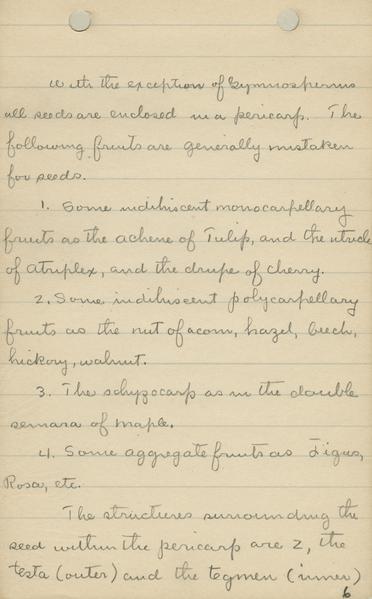 With the exception of Gymnosperms
all seeds are enclosed in a pericarp. The
following fruits are generally mistaken
for seeds.
1. Some indihiscent monocarpellary
fruits as the achene of Tulip, and the utricle
of atriplex, and the drupe of cherry.
2. Some indihiscent polycarpellary
fruits as the nut of acorn, hazel, beech,
hickory, walnut.
3. The schyzocarp as in the double
semara of maple.
4. Some aggregate fruits as Figus,
Rosa, etc.
The structures surrounding the
seed within the pericarp are 2, the
testa (outer) and the tegmen (inner)
6